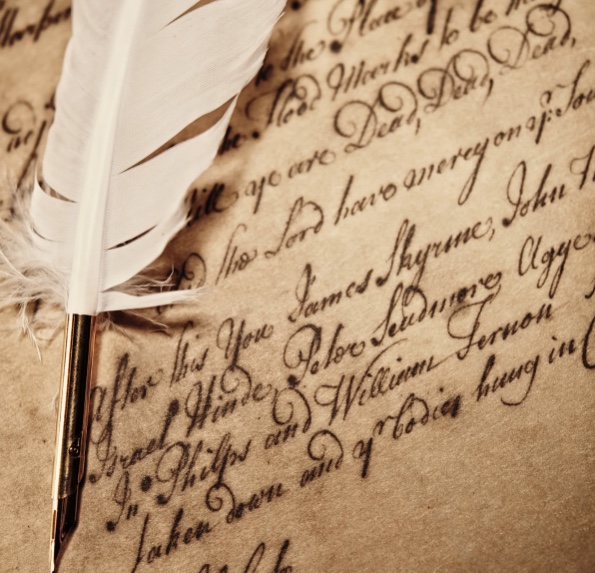 the Place of
the Flood Marks to be
till ye are Dead, Dead, Dead,
the Lord have mercy on yr. Sou
After this You James Skyrme, John
Israel Hinde, Peter Scudmore
Jn° Philps and William Fernon
taken down and yr bodies hung in C